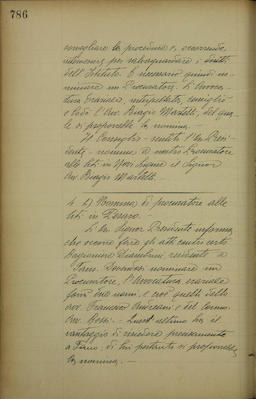 786
consigliare la procedura e, occorrendo,
intervenire per salvaguardare i diritti
dell'Istituto. È necessario quindi no-
minare un Procuratore. L'Avvoca-
tura Erariale, interpellata, consigliò
a Lodi l'Avv. Biagio Martelli, del qua-
le si proponeva la nomina.
Il Consiglio - udito il Sig. Presi-
dente - nomina a nostro Procuratore
alle liti in Novi Ligure il Signor
Avv. Biagio Martelli.
4. b) Nomina di procuratore alle
liti in Pesaro. -
Il Sig. Signor Presidente informa
che occorre fare gli atti contro certo
residente a
Fano. Dovendosi nominare un
Procuratore, l'Avvocatura erariale
fornì due nomi, e cioè quello dello
Avv. Francesco Andreani e del
Avv. Rossi. - Quest'ultimo ha il
vantaggio di risiedere precisamente
a Fano: di lui pertanto si proponeva
la nomina. -